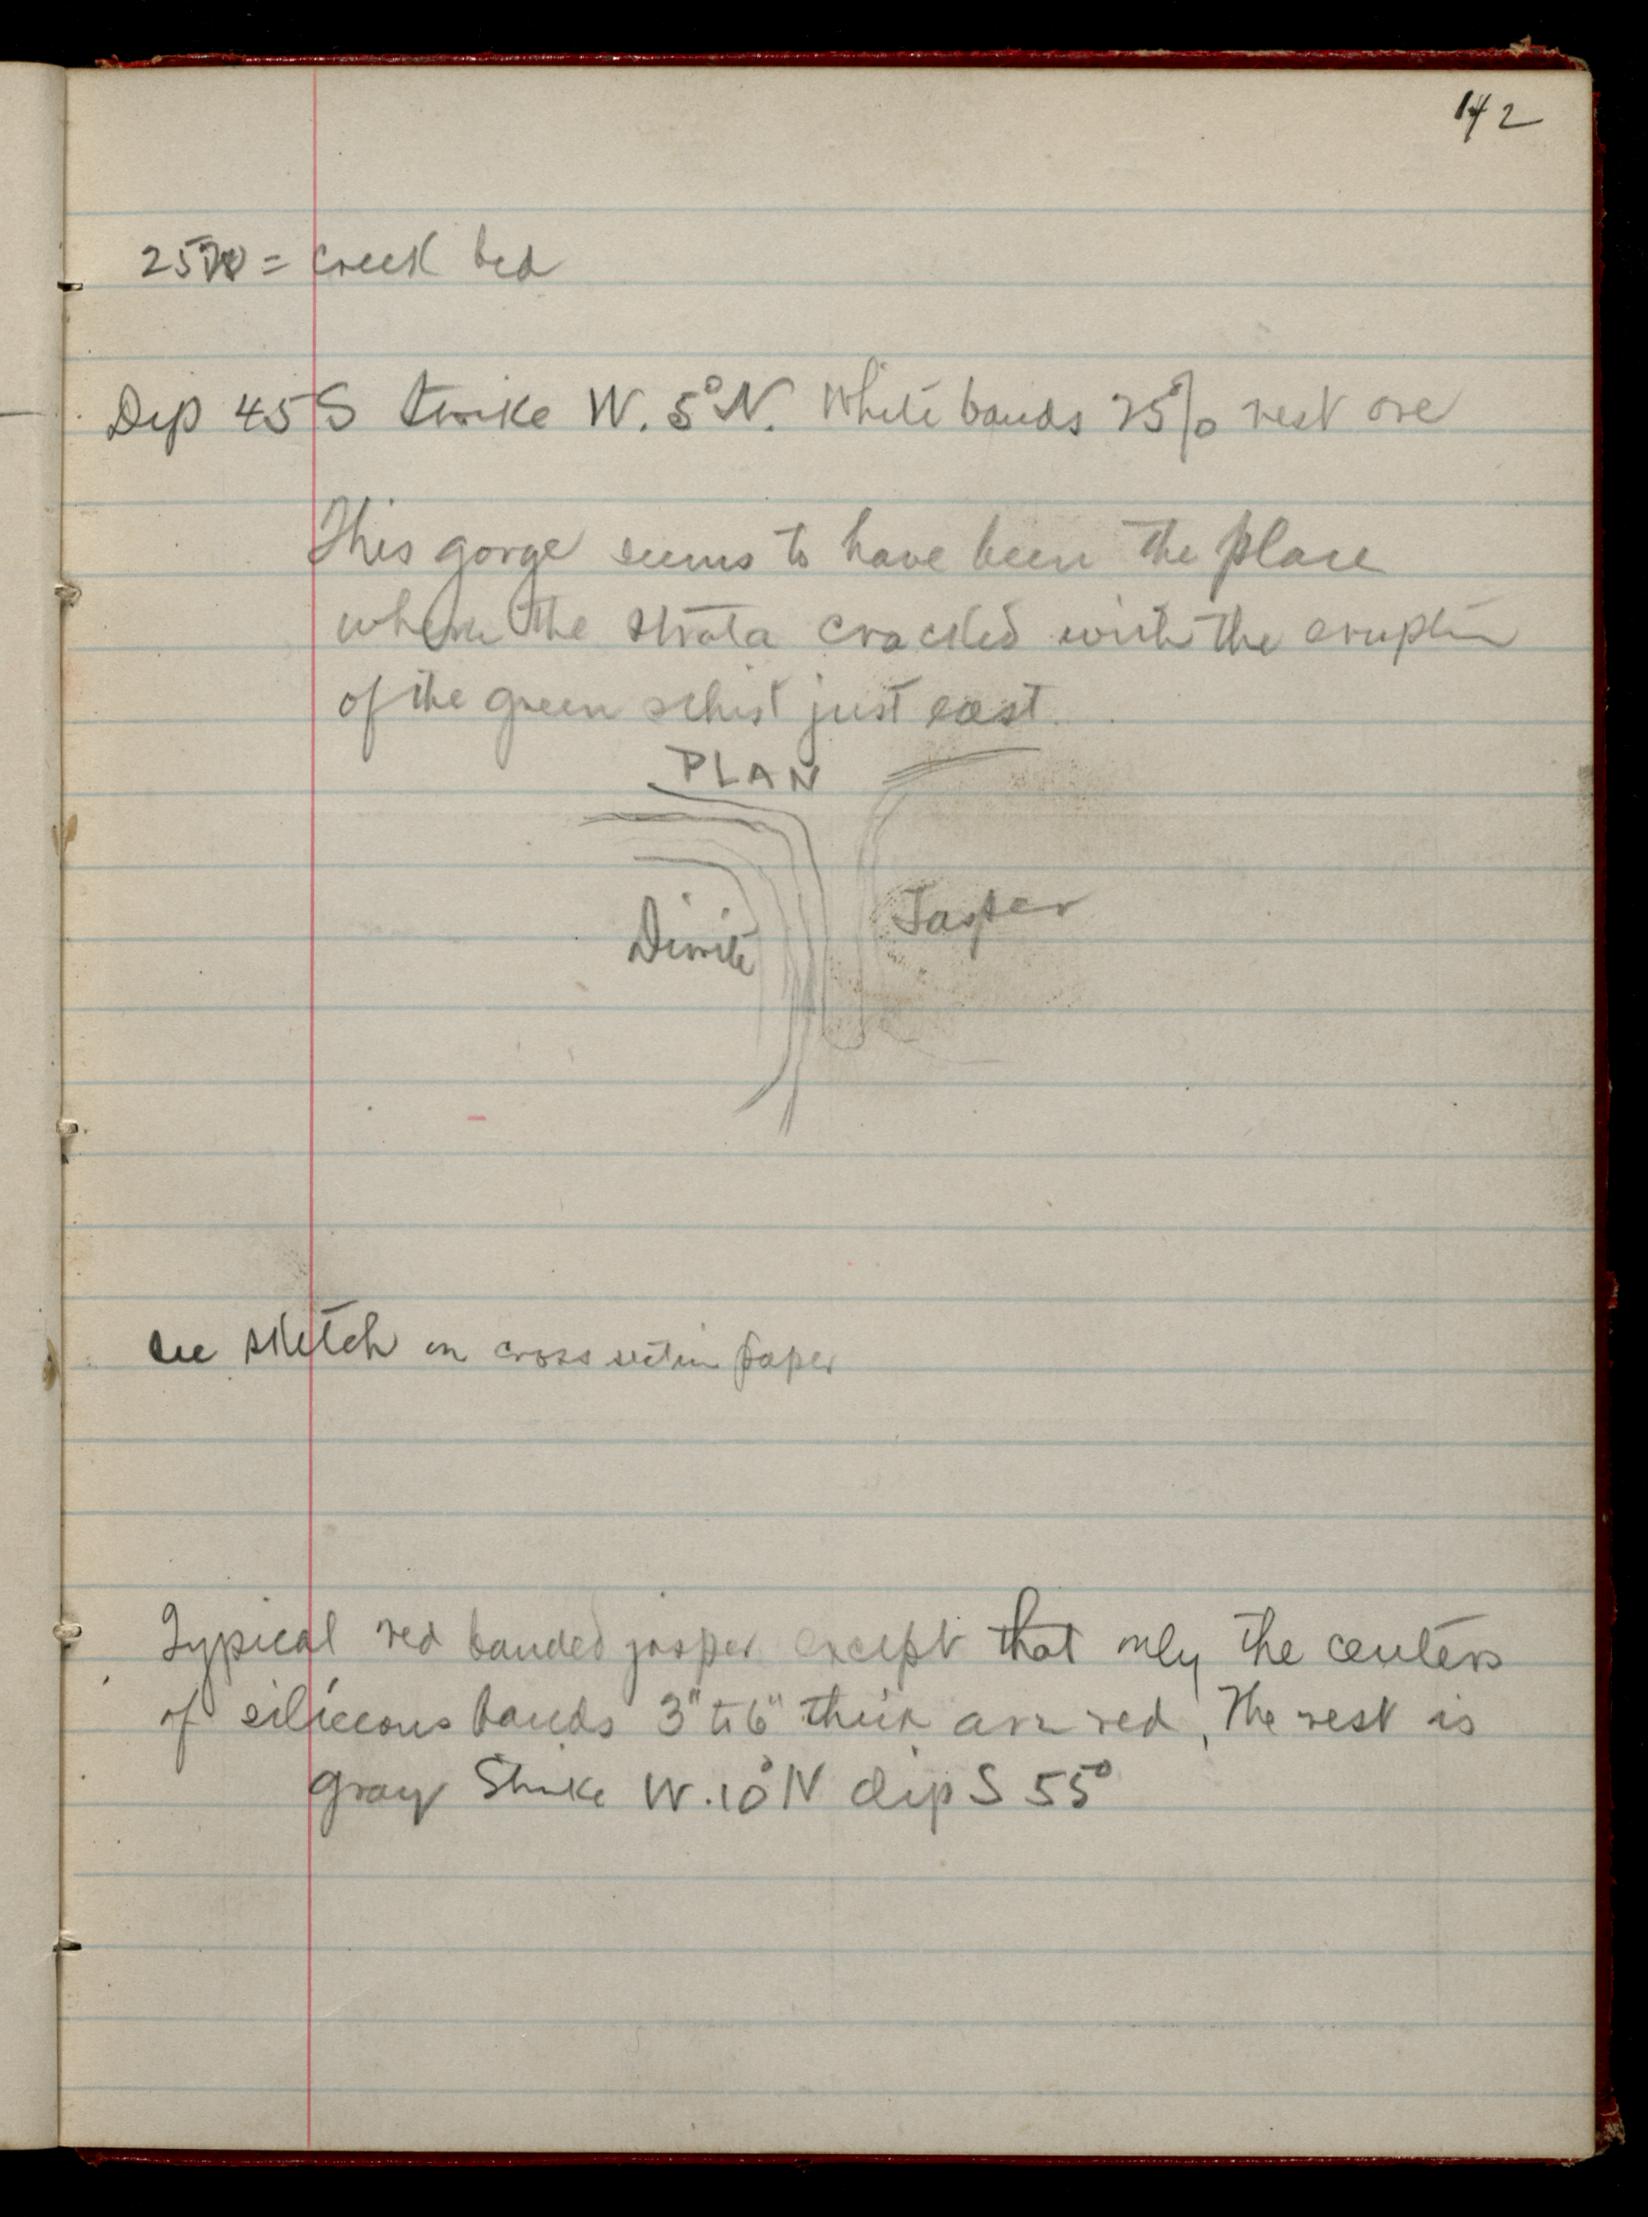 142
= creek bed
Dip 45 S Strike W. 5° N. White bands 25% rest ore
This gorge seems to have been the place
where the strata cracked with the eruption
of the green schist just east.
PLAN
Diorite
Jasper
see sketch on cross section paper
Typical red banded jasper except that only the centers
of siliceous bands 3" to 6" thick are red, The rest is
gray Strike W. 10° N dip S 55°